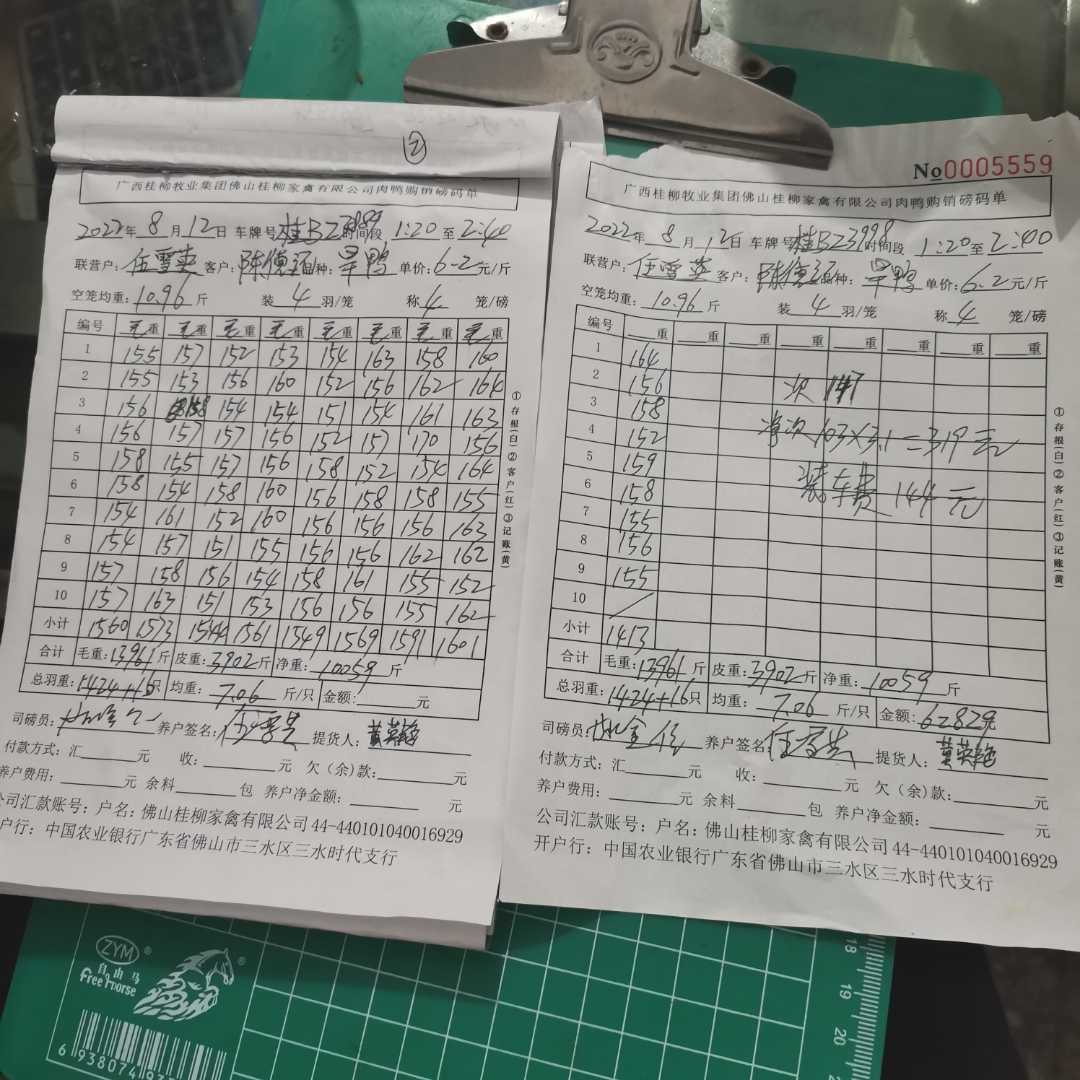 ②
广西桂柳牧业集团佛山桂柳家禽有限公司肉鸭购销磅码单
2022年 8月12日 车牌号 桂BZ3998 时间段 1:20至2:40
联营户: 伍雪英 客户: 品种: 旱鸭 单价: 6.2元/斤
空笼均重: 10.96斤 装 4 羽/笼 称 4 笼/磅
编号 毛重 毛重 毛重 毛重 毛重 毛重 毛重 毛重
1 155 157 152 153 154 163 158 160
2 155 153 156 160 152 156 162 164
3 156 158 154 154 151 154 161 163
4 156 157 157 156 152 157 170 156
5 158 155 157 156 158 152 154 164
6 158 154 158 160 156 158 158 155
7 154 161 152 160 156 156 156 163
8 154 157 151 155 156 156 162 162
9 157 158 156 154 158 161 155 152
10 157 163 151 153 156 156 155 162
小计 1560 1573 1544 1561 1549 1569 1591 1601
合计 毛重: 13961斤 皮重: 3902斤 净重: 10059斤
总羽重: 1424+16只 均重: 7.06斤/只 金额: 元
司磅员: 养户签名: 提货人: 黄英艳
付款方式: 汇 元 收: 元 欠(余)款: 元
养户费用: 元 余料 包 养户净金额: 元
公司汇款账号: 户名: 佛山桂柳家禽有限公司 44-440101040016929
户行: 中国农业银行广东省佛山市三水区三水时代支行
①存根(白)②客户(红)③记账(黄)
No0005559
广西桂柳牧业集团佛山桂柳家禽有限公司肉鸭购销磅码单
2022年 8月12日 车牌号 桂BZ3998 时间段 1:20至2:40
联营户: 伍雪英 客户: 品种: 旱鸭 单价: 6.2元/斤
空笼均重: 10.96斤 装 4 羽/笼 称 4 笼/磅
编号 重 重 重 重 重 重 重 重
1 164
2 156 次
3 158
4 152 净次 103×3.1=319元
5 159
6 158 装车费 144元
7 155
8 156
9 155
10 /
小计 1413
合计 毛重: 13961斤 皮重: 3902斤 净重: 10059斤
总羽重: 1424+16只 均重: 7.06斤/只 金额: 62829元
司磅员: 养户签名: 提货人: 黄英艳
付款方式: 汇 元 收: 元 欠(余)款: 元
养户费用: 元 余料 包 养户净金额: 元
公司汇款账号: 户名: 佛山桂柳家禽有限公司 44-440101040016929
开户行: 中国农业银行广东省佛山市三水区三水时代支行
①存根(白)②客户(红)③记账(黄)
ZYM®
自由马
Free horse
®
6 938074
18
19
20